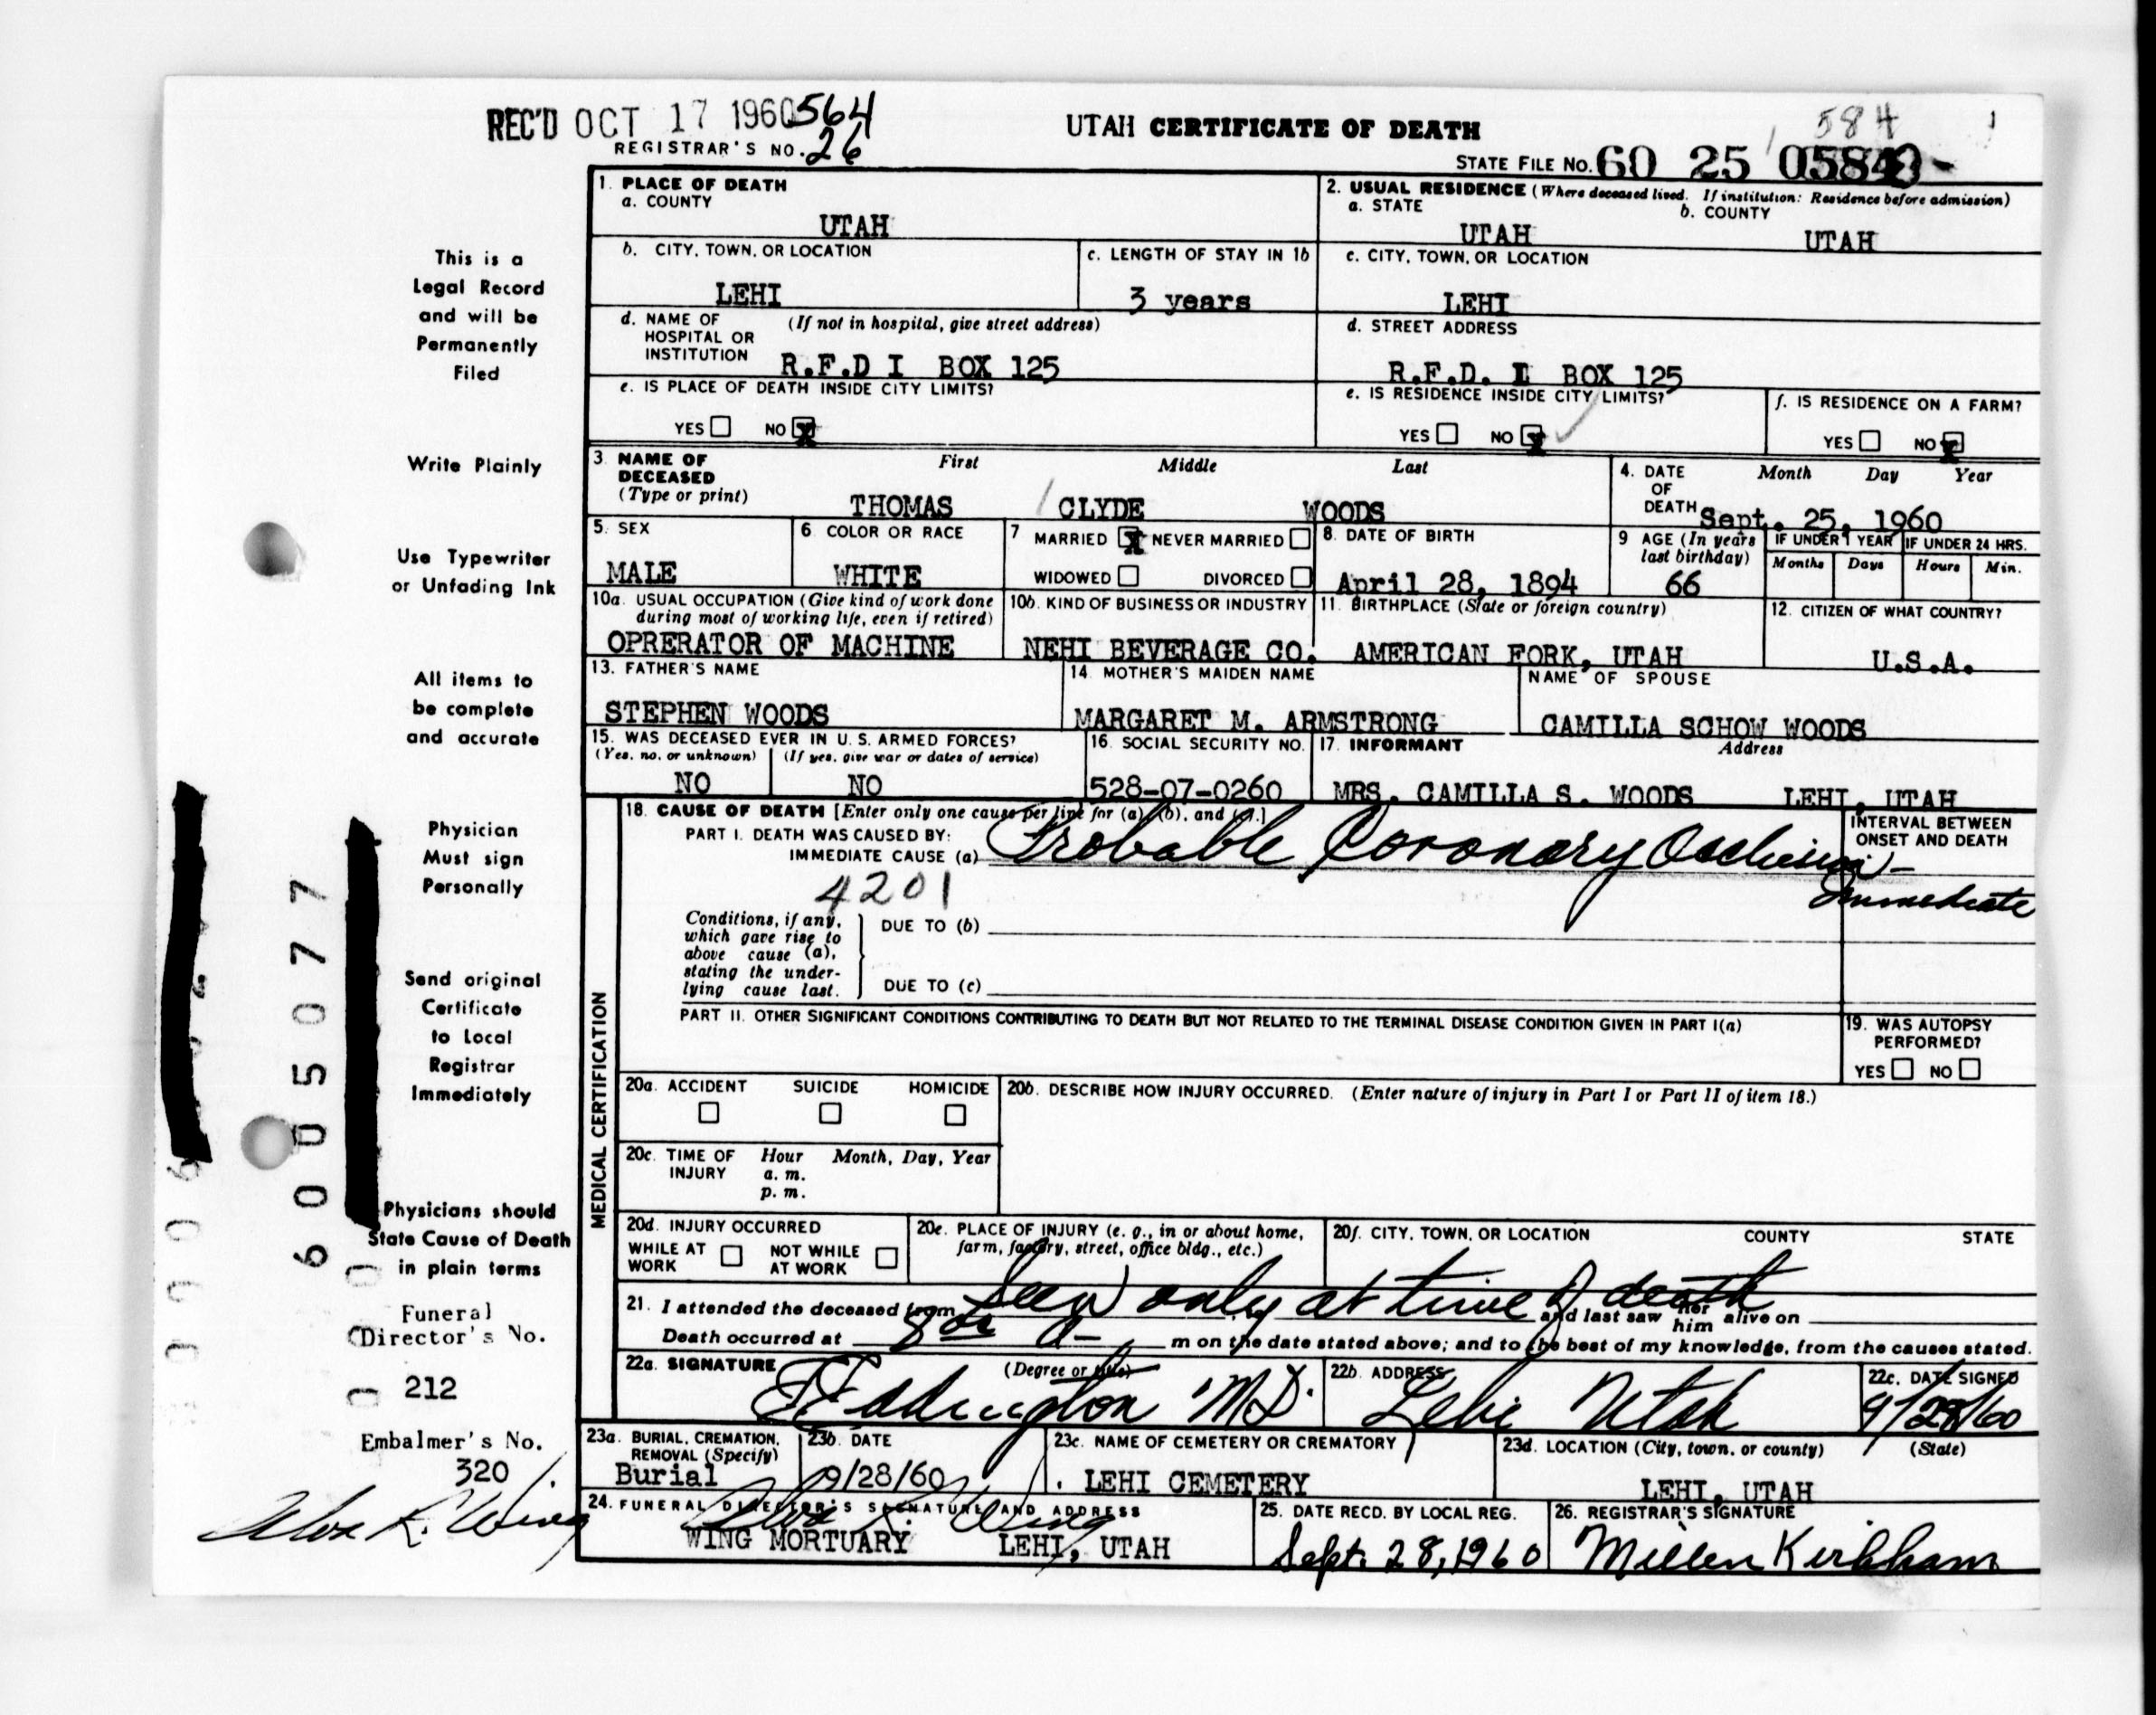 REC'D OCT 17 1960 564
REGISTRAR'S NO. 26
UTAH CERTIFICATE OF DEATH
584
STATE FILE NO. 60 25 0584
1. PLACE OF DEATH
a. COUNTY
UTAH
2. USUAL RESIDENCE (Where deceased lived. If institution: Residence before admission)
a. STATE
UTAH
b. COUNTY
UTAH
b. CITY, TOWN, OR LOCATION
LEHI
c. LENGTH OF STAY IN 1b
3 years
c. CITY, TOWN, OR LOCATION
LEHI
d. NAME OF HOSPITAL OR INSTITUTION
(If not in hospital, give street address)
R.F.D I BOX 125
d. STREET ADDRESS
R.F.D. I BOX 125
e. IS PLACE OF DEATH INSIDE CITY LIMITS?
YES NO X
e. IS RESIDENCE INSIDE CITY LIMITS?
YES NO X
f. IS RESIDENCE ON A FARM?
YES NO X
3. NAME OF DECEASED (Type or print)
First Middle Last
THOMAS CLYDE WOODS
4. DATE OF DEATH
Month Day Year
Sept. 25, 1960
5. SEX
MALE
6. COLOR OR RACE
WHITE
7 MARRIED X NEVER MARRIED
WIDOWED DIVORCED
8. DATE OF BIRTH
April 28, 1894
9 AGE (In years last birthday)
66
IF UNDER 1 YEAR IF UNDER 24 HRS.
Months Days Hours Min.
10a. USUAL OCCUPATION (Give kind of work done during most of working life, even if retired)
OPRERATOR OF MACHINE
10b. KIND OF BUSINESS OR INDUSTRY
NEHI BEVERAGE CO.
11. BIRTHPLACE (State or foreign country)
AMERICAN FORK, UTAH
12. CITIZEN OF WHAT COUNTRY?
U.S.A.
13. FATHER'S NAME
STEPHEN WOODS
14 MOTHER'S MAIDEN NAME
MARGARET M. ARMSTRONG
NAME OF SPOUSE
CAMILLA SCHOW WOODS
15. WAS DECEASED EVER IN U.S. ARMED FORCES?
(Yes, no, or unknown) (If yes, give war or dates of service)
NO NO
16. SOCIAL SECURITY NO.
528-07-0260
17. INFORMANT Address
MRS. CAMILLA S. WOODS LEHI, UTAH
MEDICAL CERTIFICATION
18. CAUSE OF DEATH [Enter only one cause per line for (a), (b), and (c).]
PART I. DEATH WAS CAUSED BY:
IMMEDIATE CAUSE (a) Probable Coronary Occlusion -
INTERVAL BETWEEN ONSET AND DEATH
Immediate
4201
Conditions, if any, which gave rise to above cause (a), stating the underlying cause last.
DUE TO (b)
DUE TO (c)
PART II. OTHER SIGNIFICANT CONDITIONS CONTRIBUTING TO DEATH BUT NOT RELATED TO THE TERMINAL DISEASE CONDITION GIVEN IN PART I(a)
19. WAS AUTOPSY PERFORMED?
YES NO
20a. ACCIDENT SUICIDE HOMICIDE
20b. DESCRIBE HOW INJURY OCCURRED. (Enter nature of injury in Part I or Part II of item 18.)
20c. TIME OF INJURY Hour Month, Day, Year
a. m.
p. m.
20d. INJURY OCCURRED
WHILE AT WORK NOT WHILE AT WORK
20e. PLACE OF INJURY (e. g., in or about home, farm, factory, street, office bldg., etc.)
20f. CITY, TOWN, OR LOCATION COUNTY STATE
21. I attended the deceased from Seen only at time of death and last saw her him alive on
Death occurred at 8 00 a m on the date stated above; and to the best of my knowledge, from the causes stated.
22a. SIGNATURE (Degree or title)
Eddington MD.
22b. ADDRESS
Lehi Utah
22c. DATE SIGNED
9/28/60
23a. BURIAL, CREMATION, REMOVAL (Specify)
Burial
23b. DATE
9/28/60
23c. NAME OF CEMETERY OR CREMATORY
LEHI CEMETERY
23d. LOCATION (City, town, or county) (State)
LEHI, UTAH
24. FUNERAL DIRECTOR'S SIGNATURE AND ADDRESS
Alva R. Wing
WING MORTUARY LEHI, UTAH
25. DATE RECD. BY LOCAL REG.
Sept. 28, 1960
26. REGISTRAR'S SIGNATURE
Millen Kirkham
This is a
Legal Record
and will be
Permanently
Filed
Write Plainly
Use Typewriter
or Unfading Ink
All items to
be complete
and accurate
Physician
Must sign
Personally
Send original
Certificate
to Local
Registrar
Immediately
Physicians should
State Cause of Death
in plain terms
Funeral
Director's No.
212
Embalmer's No.
320
Alva R. Wing
6005077